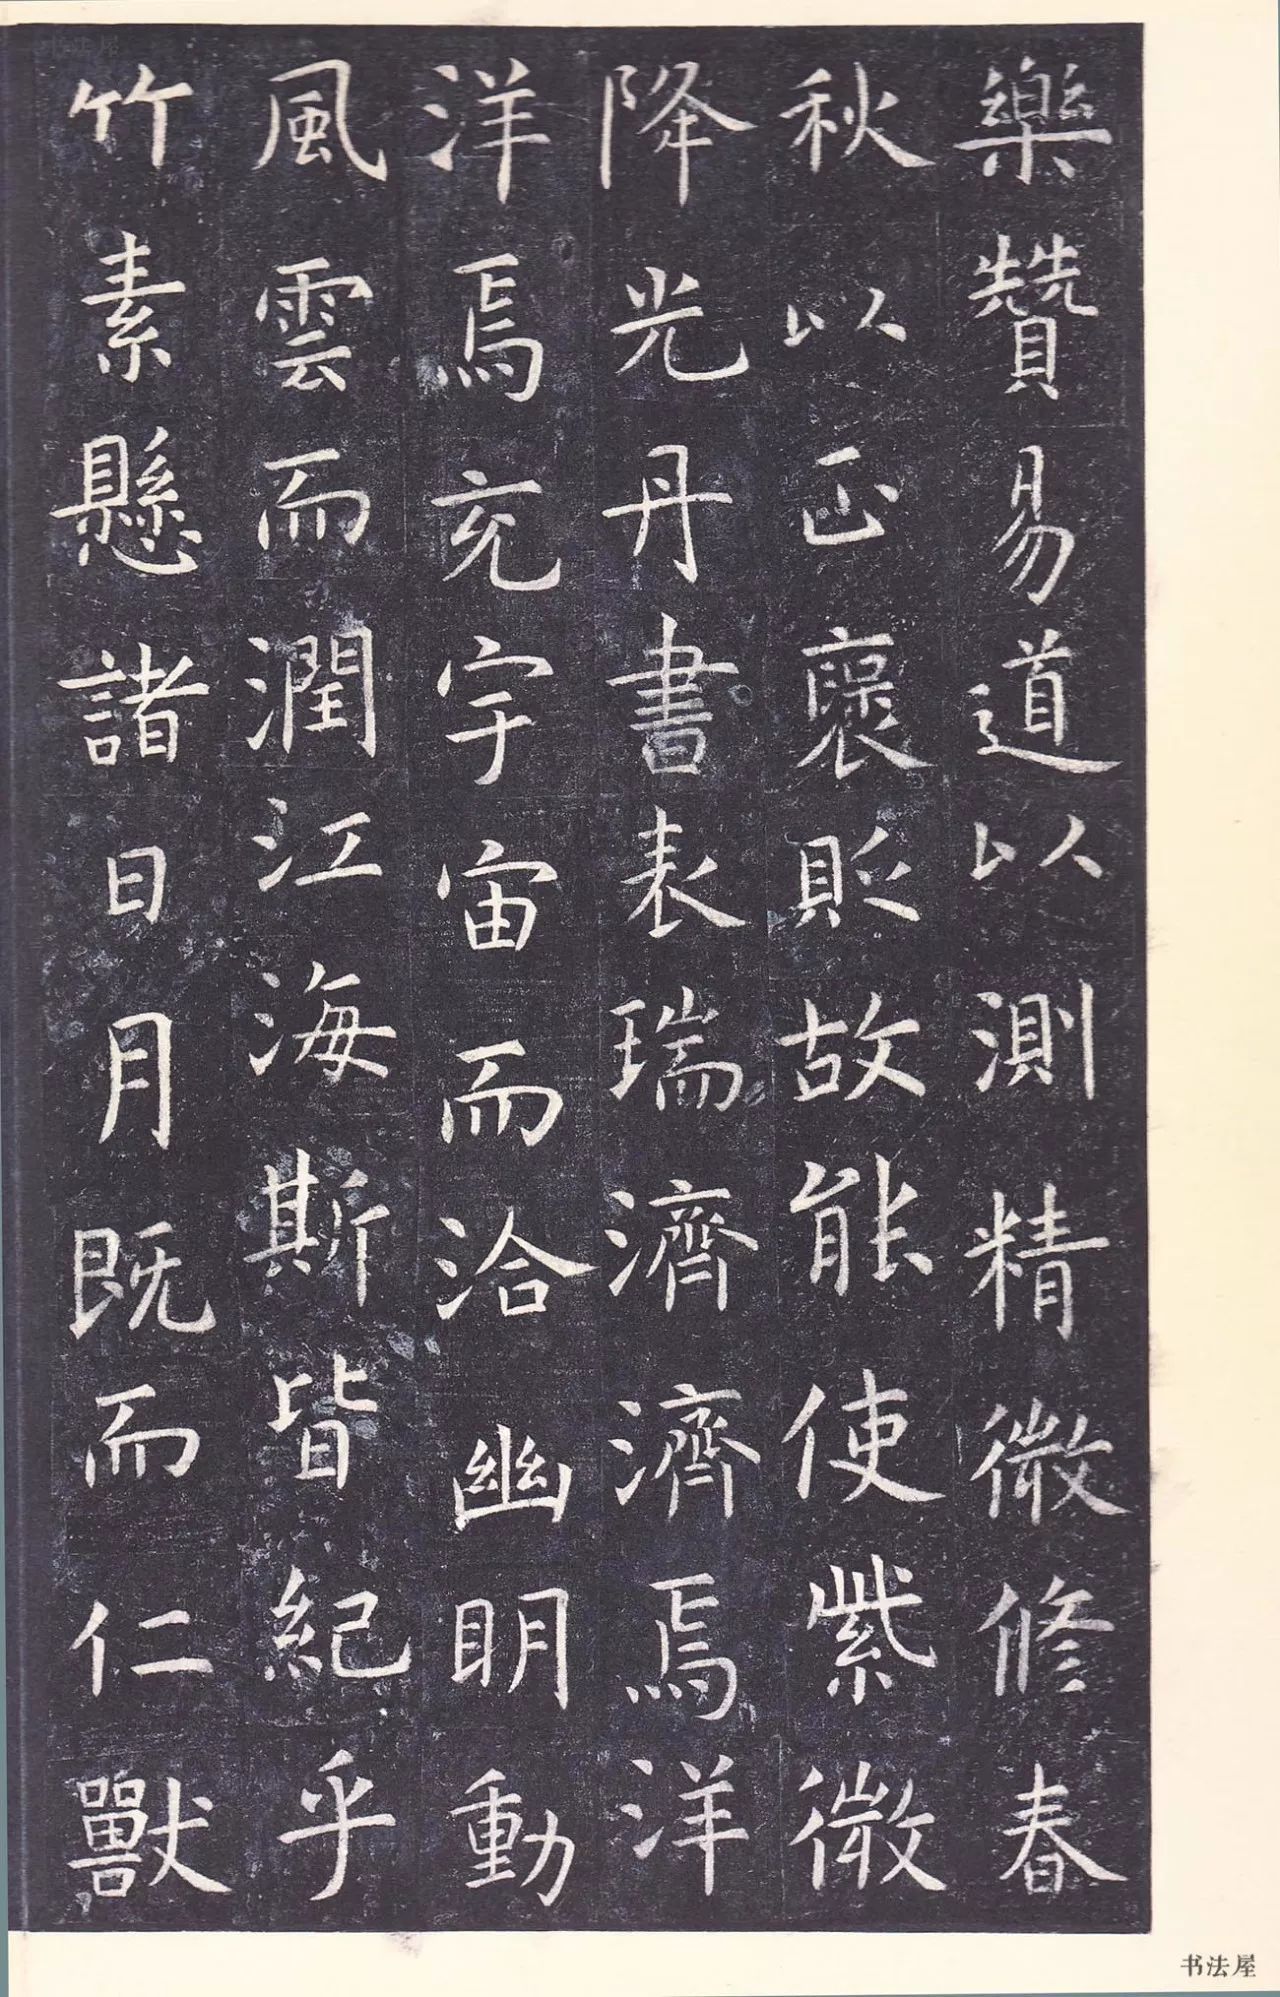 樂贊易道以測精微修春
秋以正褒貶故能使紫微
降光丹書表瑞濟濟焉洋
洋焉充宇宙而洽幽明動
風雲而潤江海斯皆紀乎
竹素懸諸日月既而仁獸
书法屋
书法屋